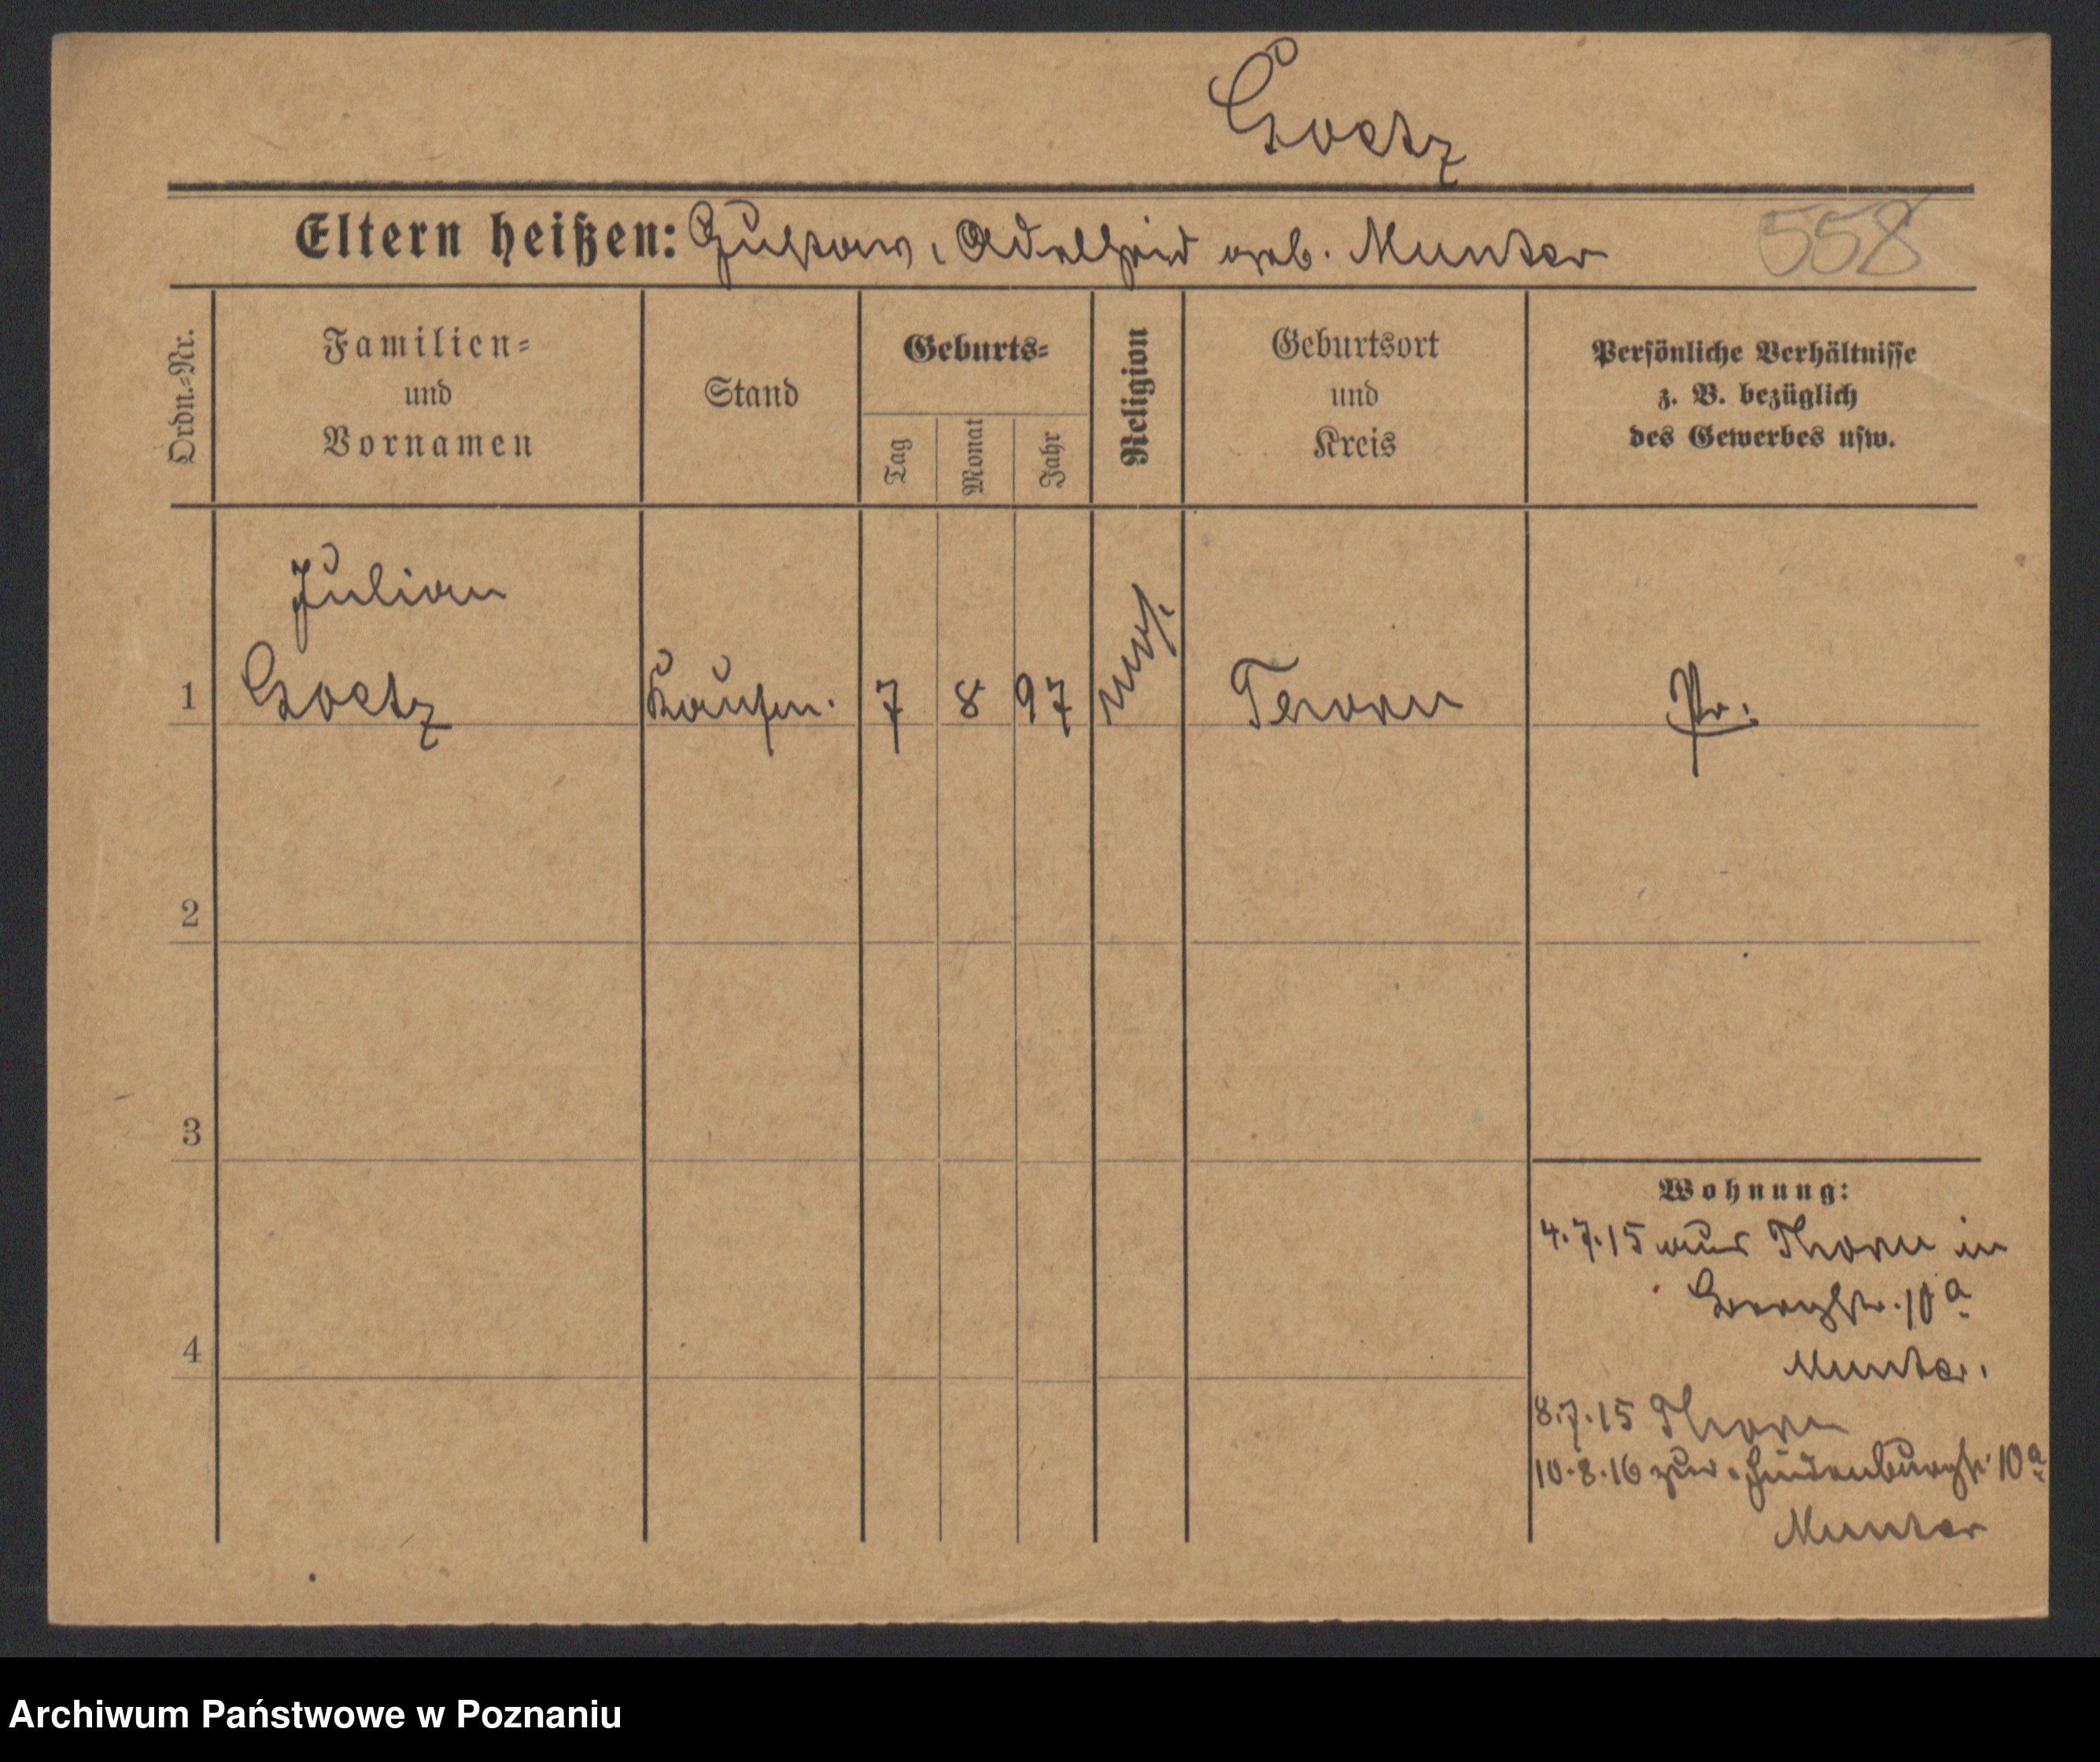 Goetz
Eltern heißen: Gustav, Adelheid geb. Munter
558
Ordn.-Nr.
Familien-
und
Vornamen
Stand
Geburts-
Tag
Monat
Jahr
Religion
Geburtsort
und
Kreis
Persönliche Verhältnisse
z. B. bezüglich
des Gewerbes usw.
Julian
1 Goetz Kaufm. 7 8 97 mos. Thorn Pr.
2
3
4
Wohnung:
4.7.15 aus Thorn in
10a
Munter.
8.7.15 Thorn
10.8.16 zur. Hindenburgstr. 10a
Munter
Archiwum Państwowe w Poznaniu